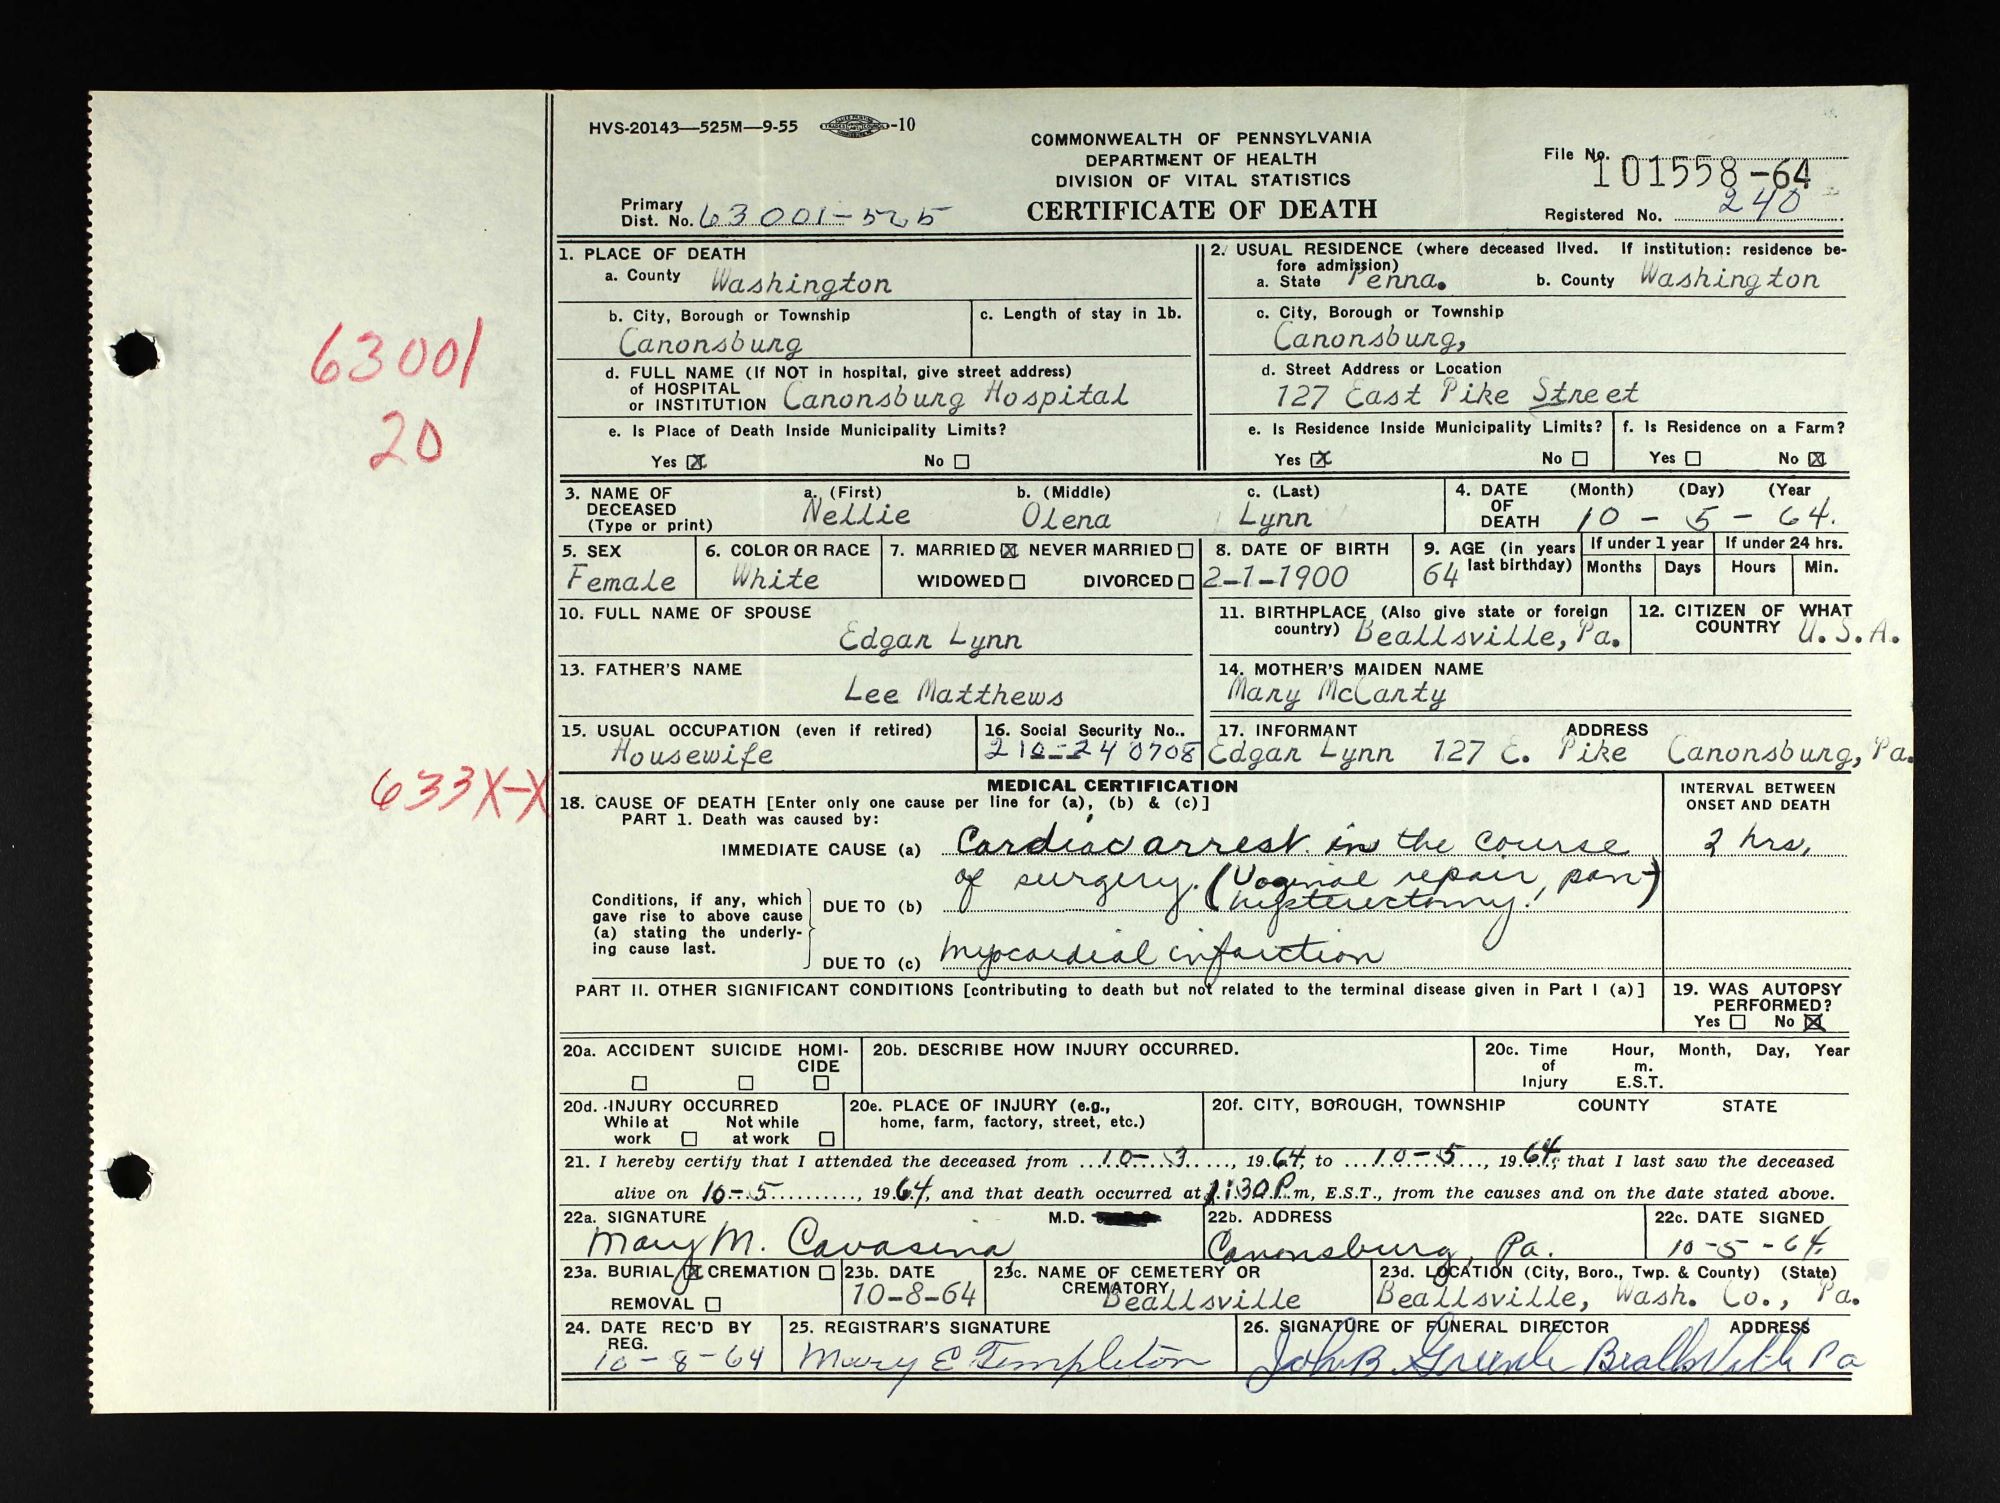 HVS-20143—525M—9-55 -10
COMMONWEALTH OF PENNSYLVANIA
DEPARTMENT OF HEALTH
DIVISION OF VITAL STATISTICS
CERTIFICATE OF DEATH
File No. 101558-64
Registered No. 240
Primary
Dist. No. 63001-525
63001
20
633X-X
1. PLACE OF DEATH
a. County Washington
b. City, Borough or Township
Canonsburg
c. Length of stay in 1b.
d. FULL NAME (If NOT in hospital, give street address)
of HOSPITAL
or INSTITUTION Canonsburg Hospital
e. Is Place of Death Inside Municipality Limits?
Yes ☒ No ☐
2. USUAL RESIDENCE (where deceased lived. If institution: residence be-
fore admission)
a. State Penna. b. County Washington
c. City, Borough or Township
Canonsburg,
d. Street Address or Location
127 East Pike Street
e. Is Residence Inside Municipality Limits?
Yes ☒ No ☐
f. Is Residence on a Farm?
Yes ☐ No ☒
3. NAME OF
DECEASED
(Type or print)
a. (First) b. (Middle) c. (Last)
Nellie Olena Lynn
4. DATE (Month) (Day) (Year
OF
DEATH 10 - 5 - 64.
5. SEX
Female
6. COLOR OR RACE
White
7. MARRIED ☒ NEVER MARRIED ☐
WIDOWED ☐ DIVORCED ☐
8. DATE OF BIRTH
2-1-1900
9. AGE (in years
last birthday)
64
If under 1 year
Months Days
If under 24 hrs.
Hours Min.
10. FULL NAME OF SPOUSE
Edgar Lynn
11. BIRTHPLACE (Also give state or foreign
country) Beallsville, Pa.
12. CITIZEN OF WHAT
COUNTRY U.S.A.
13. FATHER'S NAME
Lee Matthews
14. MOTHER'S MAIDEN NAME
Mary McCarty
15. USUAL OCCUPATION (even if retired)
Housewife
16. Social Security No..
210-24 0708
17. INFORMANT ADDRESS
Edgar Lynn 127 E. Pike Canonsburg, Pa.
MEDICAL CERTIFICATION
18. CAUSE OF DEATH [Enter only one cause per line for (a), (b) & (c)]
PART 1. Death was caused by:
INTERVAL BETWEEN
ONSET AND DEATH
IMMEDIATE CAUSE (a) Cardiac arrest in the course 2 hrs.
of surgery. (Vaginal repair, pan-
hysterectomy.)
Conditions, if any, which
gave rise to above cause
(a) stating the underly-
ing cause last.
DUE TO (b)
DUE TO (c) Myocardial infarction
PART II. OTHER SIGNIFICANT CONDITIONS [contributing to death but not related to the terminal disease given in Part I (a)]
19. WAS AUTOPSY
PERFORMED?
Yes ☐ No ☒
20a. ACCIDENT SUICIDE HOMI-
CIDE
☐ ☐ ☐
20b. DESCRIBE HOW INJURY OCCURRED.
20c. Time Hour, Month, Day, Year
of m.
Injury E.S.T.
20d. INJURY OCCURRED
While at Not while
work ☐ at work ☐
20e. PLACE OF INJURY (e.g.,
home, farm, factory, street, etc.)
20f. CITY, BOROUGH, TOWNSHIP COUNTY STATE
21. I hereby certify that I attended the deceased from 10-3, 1964, to 10-5, 1964, that I last saw the deceased
alive on 10-5, 1964, and that death occurred at 1:30 P.m, E.S.T., from the causes and on the date stated above.
22a. SIGNATURE M.D.
Mary M. Cavasina
22b. ADDRESS
Canonsburg, Pa.
22c. DATE SIGNED
10-5-64
23a. BURIAL ☒ CREMATION ☐
REMOVAL ☐
23b. DATE
10-8-64
23c. NAME OF CEMETERY OR
CREMATORY
Beallsville
23d. LOCATION (City, Boro., Twp. & County) (State)
Beallsville, Wash. Co., Pa.
24. DATE REC'D BY
REG.
10-8-64
25. REGISTRAR'S SIGNATURE
Mary E Templeton
26. SIGNATURE OF FUNERAL DIRECTOR ADDRESS
John B Greenlee Beallsville Pa